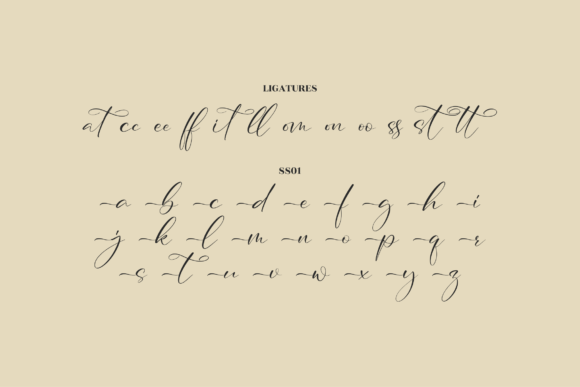 LIGATURES
at cc ee ff it ll om on oo ss st tt
SS01
a b c d e f g h i
j k l m n o p q r
s t u v w x y z